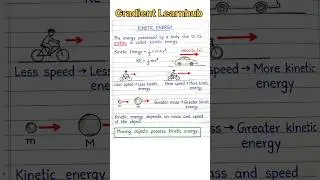 Gradient Learnhub
KINETIC ENERGY
The energy possessed by a body due to its
motion is called kinetic energy.
Kinetic Energy = 1/2 × m × v²
Velocity (v)
KE = 1/2 mv²
Less speed → Less kinetic energy
More speed → More kinetic energy
Greater mass → Greater kinetic energy
Kinetic energy depends on mass and speed
of the object.
Moving objects possess kinetic energy.
Less speed → Less
kinetic
energy
More kinetic
energy
m
M
Greater kinetic
energy
Kinetic energy
mass and speed